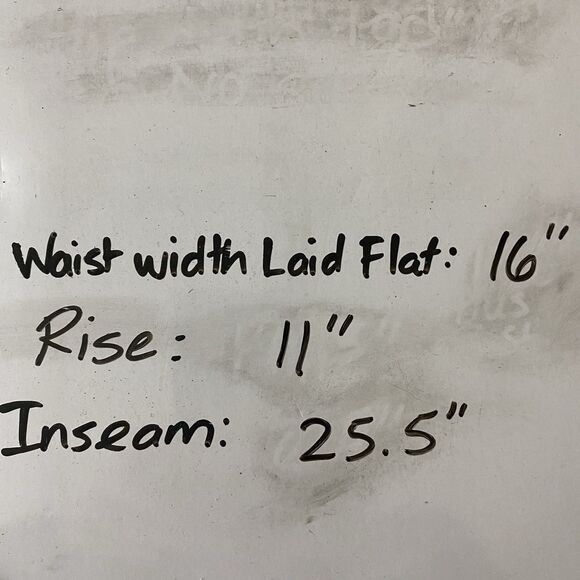 Waist width Laid Flat: 16"
Rise: 11"
Inseam: 25.5"